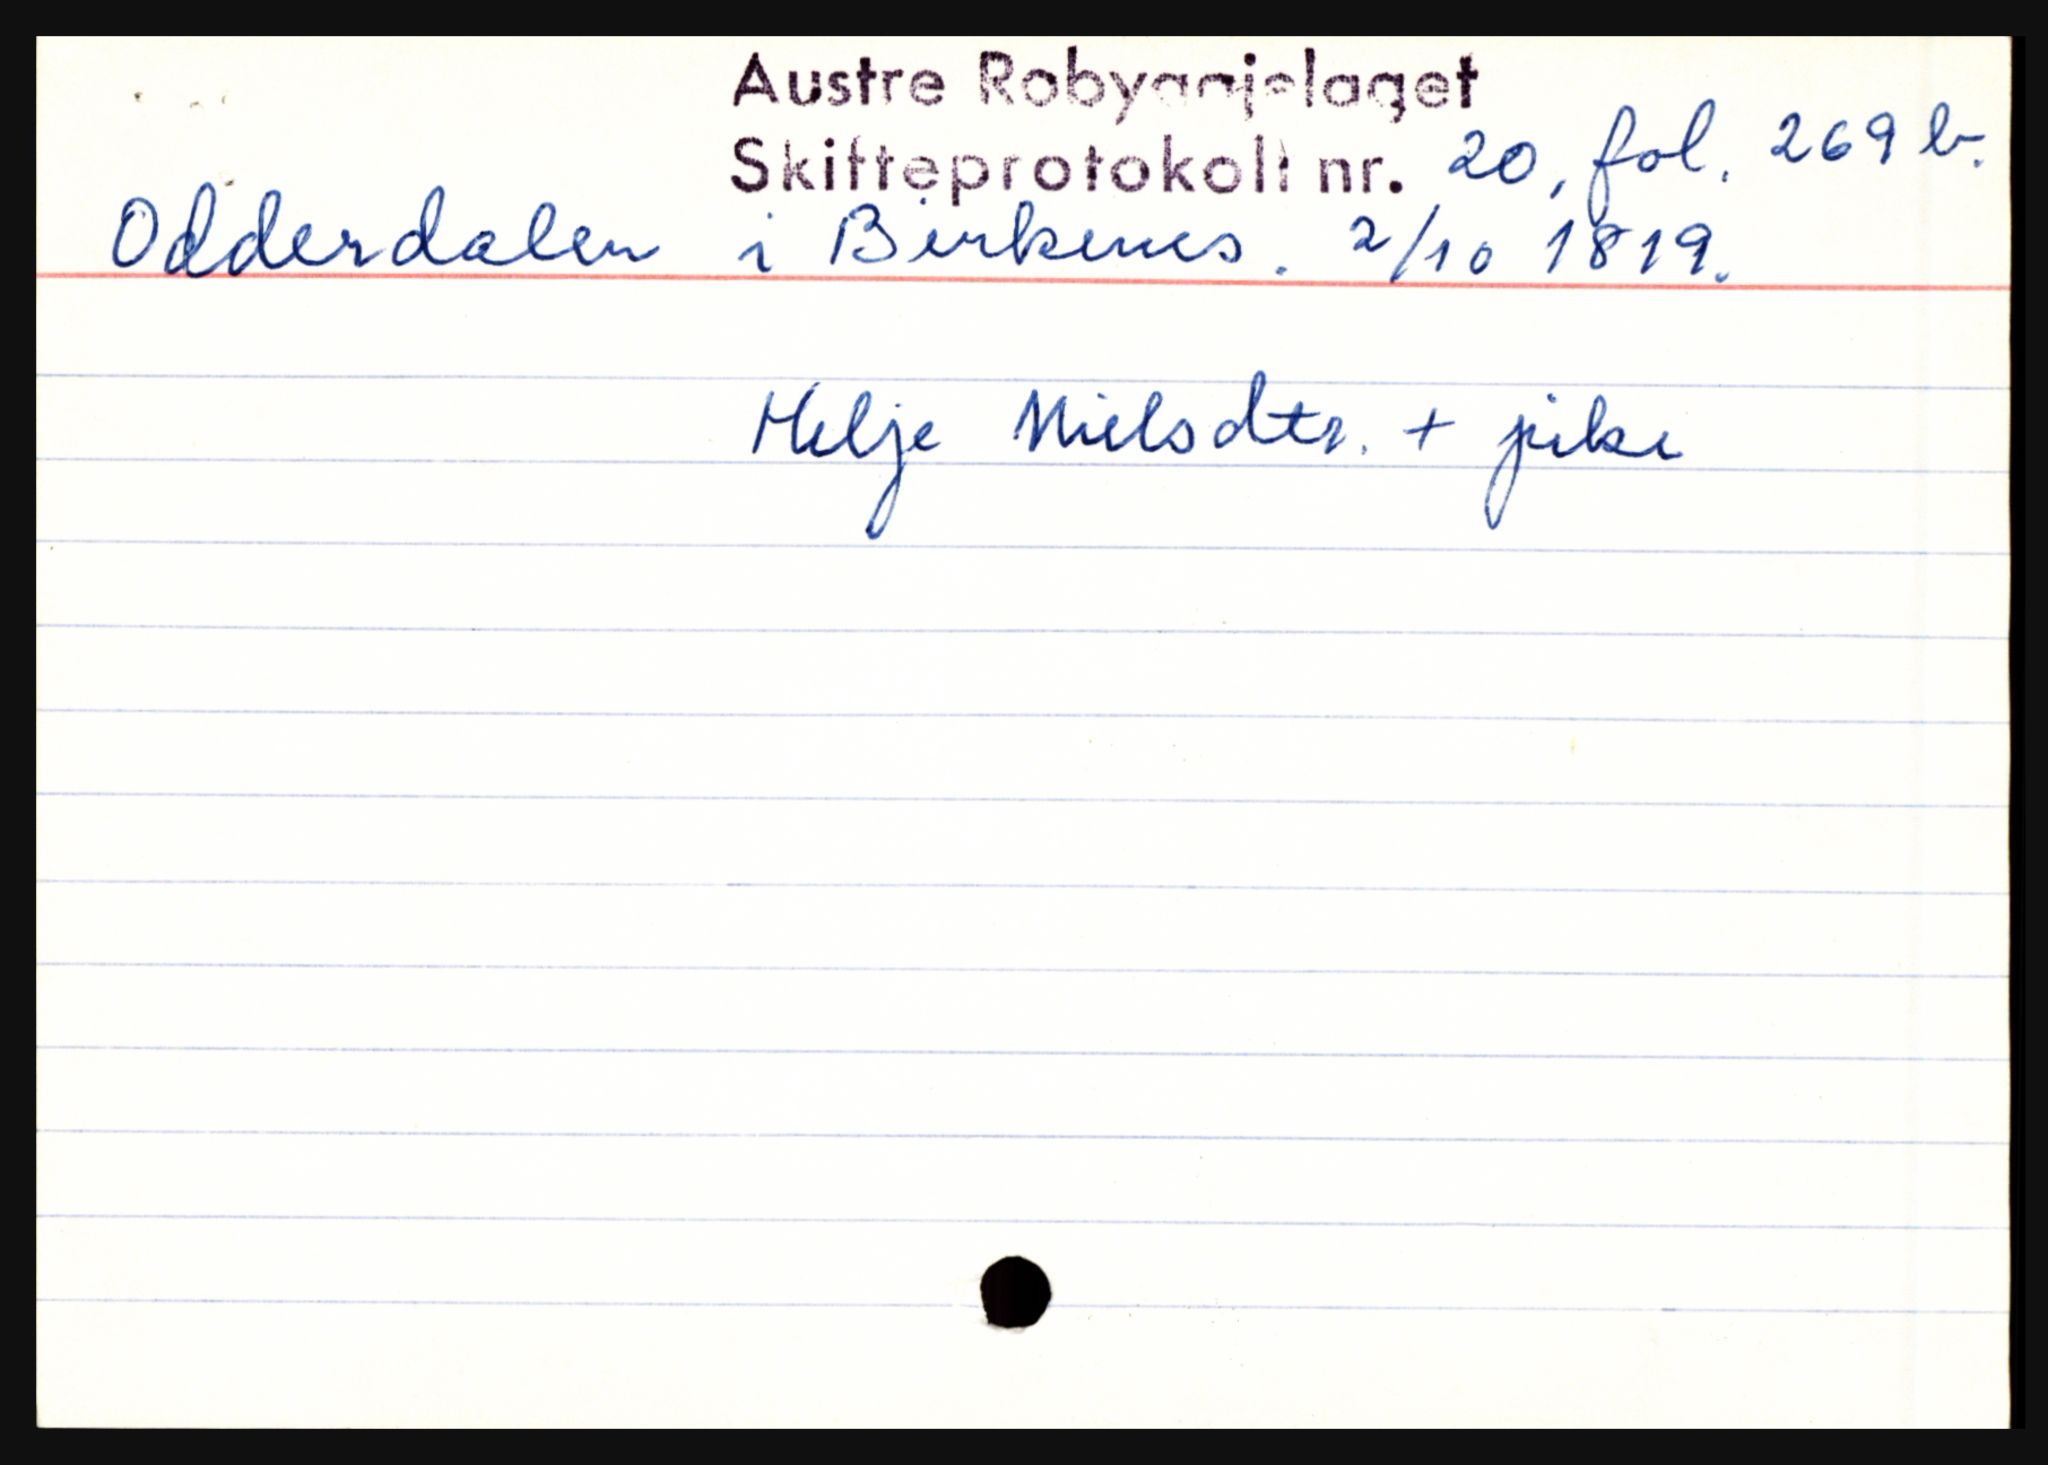 Austre Robyggjelaget
Skifteprotokoll nr. 20, fol. 269 b.
Odderdalen i Birkenes. 2/10 1819.
Helje Nielsdtr. + pike